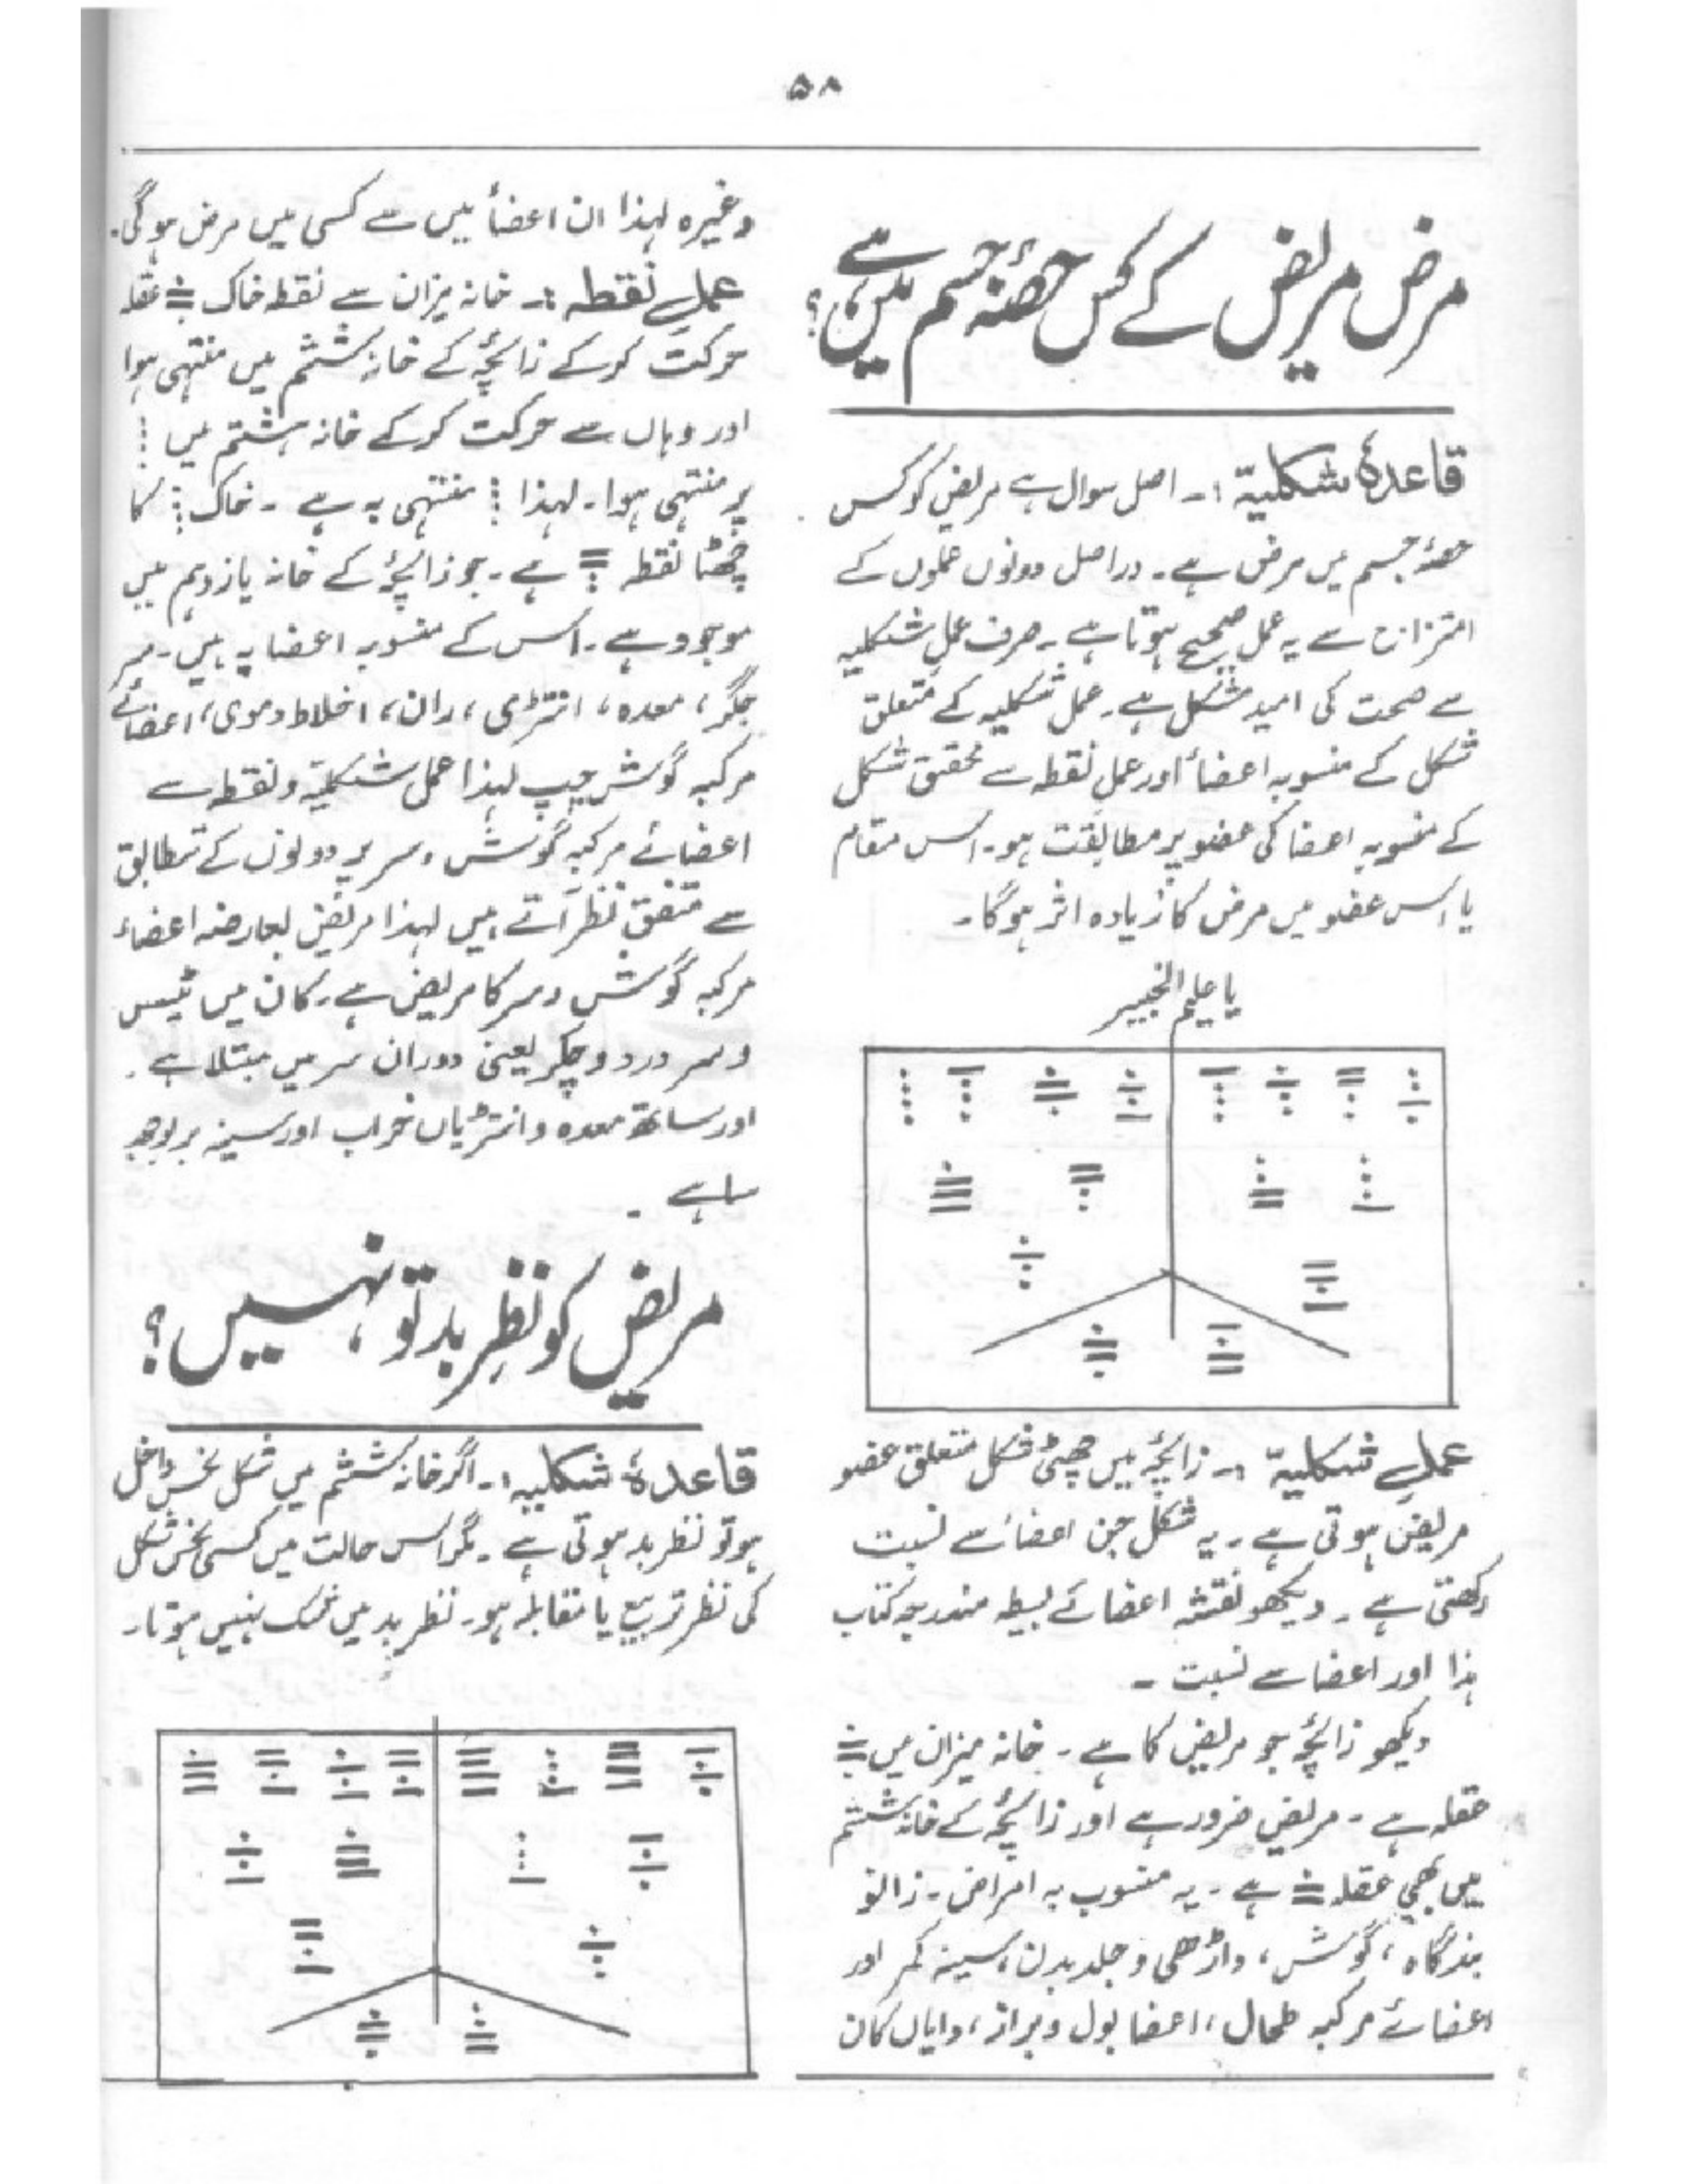 ۵۸
مرض مریض کے کس حصّۂ جسم میں ہے؟
قاعدۂ شکلیّہ :۔ اصل سوال ہے مریض کو کس
حصۂ جسم میں مرض ہے۔ دراصل دونوں عملوں کے
امتزاج سے یہ عمل صحیح ہوتا ہے۔ صرف عمل شکلیہ
سے صحت کی امید مشکل ہے۔ عمل شکلیہ کے متعلق
شکل کے منسوبہ اعضأ اور عمل نقطہ سے تحقیق شکل
کے منسوبہ اعضا کی عضو پر مطابقت ہو۔ اس مقام
یا اس عضو میں مرض کا زیادہ اثر ہوگا۔
یا علیم الخبیر
عملِ شکلیّہ :۔ زائچہ میں چھٹی شکل متعلق عضو
مریض ہوتی ہے۔ یہ شکل جن اعضأ سے نسبت
رکھتی ہے۔ دیکھو نقشہ اعضائے بسیطہ مندرجہ کتاب
ہذا اور اعضا سے نسبت ۔
دیکھو زائچہ جو مریض کا ہے۔ خانہ میزان میں
عقلہ ہے۔ مریض ضرور ہے اور زائچہ کے خانہ ششم
میں بھی عقلہ ہے۔ یہ منسوب بہ امراض۔ زانو
بندگاہ، گوش، داڑھی و جلد بدن، سینہ کمر اور
اعضائے مرکبہ طحال، اعضا بول و براز، دایاں کان
وغیرہ لہذا ان اعضأ میں سے کسی میں مرض ہوگی۔
عملِ نقطہ :۔ خانہ میزان سے نقطہ خاک عقلہ
حرکت کرکے زائچہ کے خانہ ششم میں منتہی ہوا
اور وہاں سے حرکت کرکے خانہ ہشتم میں
پر منتہی ہوا۔ لہذا منتہی بہ ہے ۔ خاک کا
چھٹا نقطہ ہے۔ جو زائچہ کے خانہ یازدہم میں
موجود ہے۔ اس کے منسوبہ اعضا یہ ہیں۔ سر
جگر، معدہ، انتڑی، ران، اخلاط دموی، اعضائے
مرکبہ گوش چپ لہذا عمل شکلیّہ و نقطہ سے
اعضائے مرکبہ گوش و سر پر دونوں کے تطابق
سے متفق نظر آتے ہیں لہذا مریض بعارضہ اعضاء
مرکبہ گوش و سر کا مریض ہے۔ کان میں ٹیس
و سر درد و چکر یعنی دوران سر میں مبتلا ہے۔
اور ساتھ معدہ و انتڑیاں خراب اور سینہ پر بوجھ
سا ہے ۔
مریض کو نظرِ بد تو نہیں؟
قاعدۂ شکلیہ :۔ اگر خانہ ششم میں شکل نحس داخل
ہو تو نظر بد ہوتی ہے۔ مگر اس حالت میں کسی نحس شکل
کی نظر تربیع یا مقابلہ ہو۔ نظر بد میں شک نہیں ہوتا۔